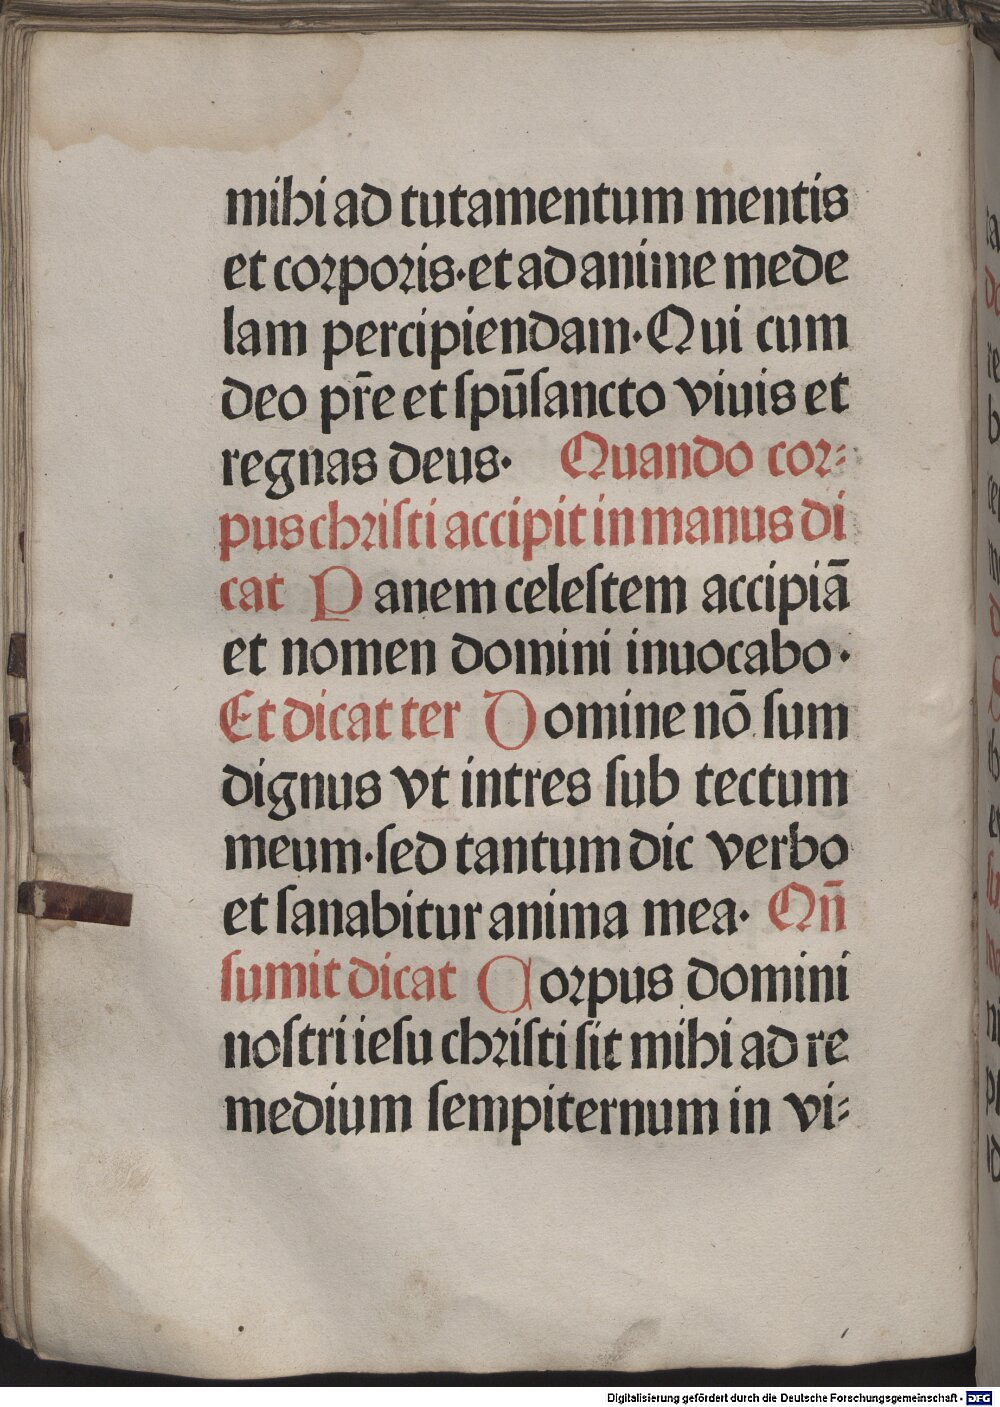 mihi ad tutamentum mentis
et corporis·et ad anime mede
lam percipiendam·Qui cum
deo pr̄e et ſpūſancto viuis et
regnas deus· Quando cor⸗
pus chriſti accipit in manus di
cat Panem celeſtem accipiā
et nomen domini inuocabo·
Et dicat ter Domine nō ſum
dignus vt intres ſub tectum
meum·ſed tantum dic verbo
et ſanabitur anima mea· Qn̄
ſumit dicat Corpus domini
noſtri ieſu chriſti ſit mihi ad re
medium ſempiternum in vi⸗
Digitalisierung gefördert durch die Deutsche Forschungsgemeinschaft - DFG